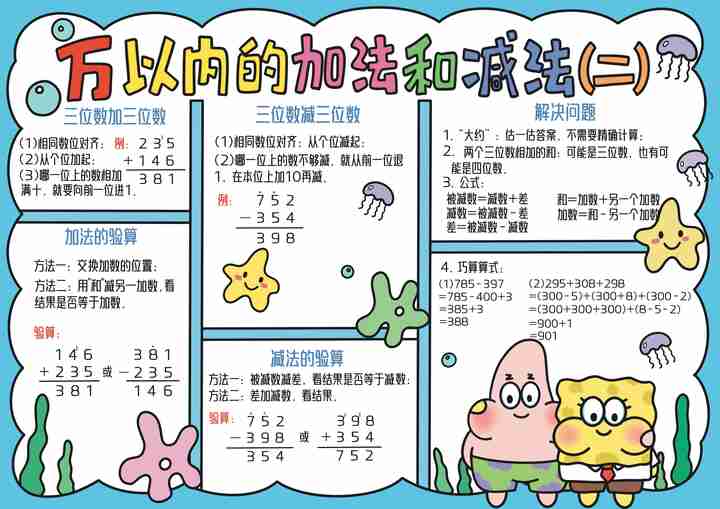 万以内的加法和减法(二)
三位数加三位数
(1)相同数位对齐;
(2)从个位加起;
(3)哪一位上的数相加
满十,就要向前一位进1.
例:
235
+146
381
加法的验算
方法一:交换加数的位置;
方法二:用"和"减另一加数,看
结果是否等于加数.
验算:
146
+235
381
或
381
-235
146
三位数减三位数
(1)相同数位对齐;从个位减起;
(2)哪一位上的数不够减,就从前一位退
1,在本位上加10再减.
例:
752
-354
398
减法的验算
方法一:被减数减差,看结果是否等于减数;
方法二:差加减数,看结果.
验算:
752
-398
354
或
398
+354
752
解决问题
1."大约":估一估答案,不需要精确计算;
2.两个三位数相加的和:可能是三位数,也有可
能是四位数.
3.公式:
被减数=减数+差
减数=被减数-差
差=被减数-减数
和=加数+另一个加数
加数=和-另一个加数
4.巧算算式:
(1)785-397
=785-400+3
=385+3
=388
(2)295+308+298
=(300-5)+(300+8)+(300-2)
=(300+300+300)+(8-5-2)
=900+1
=901